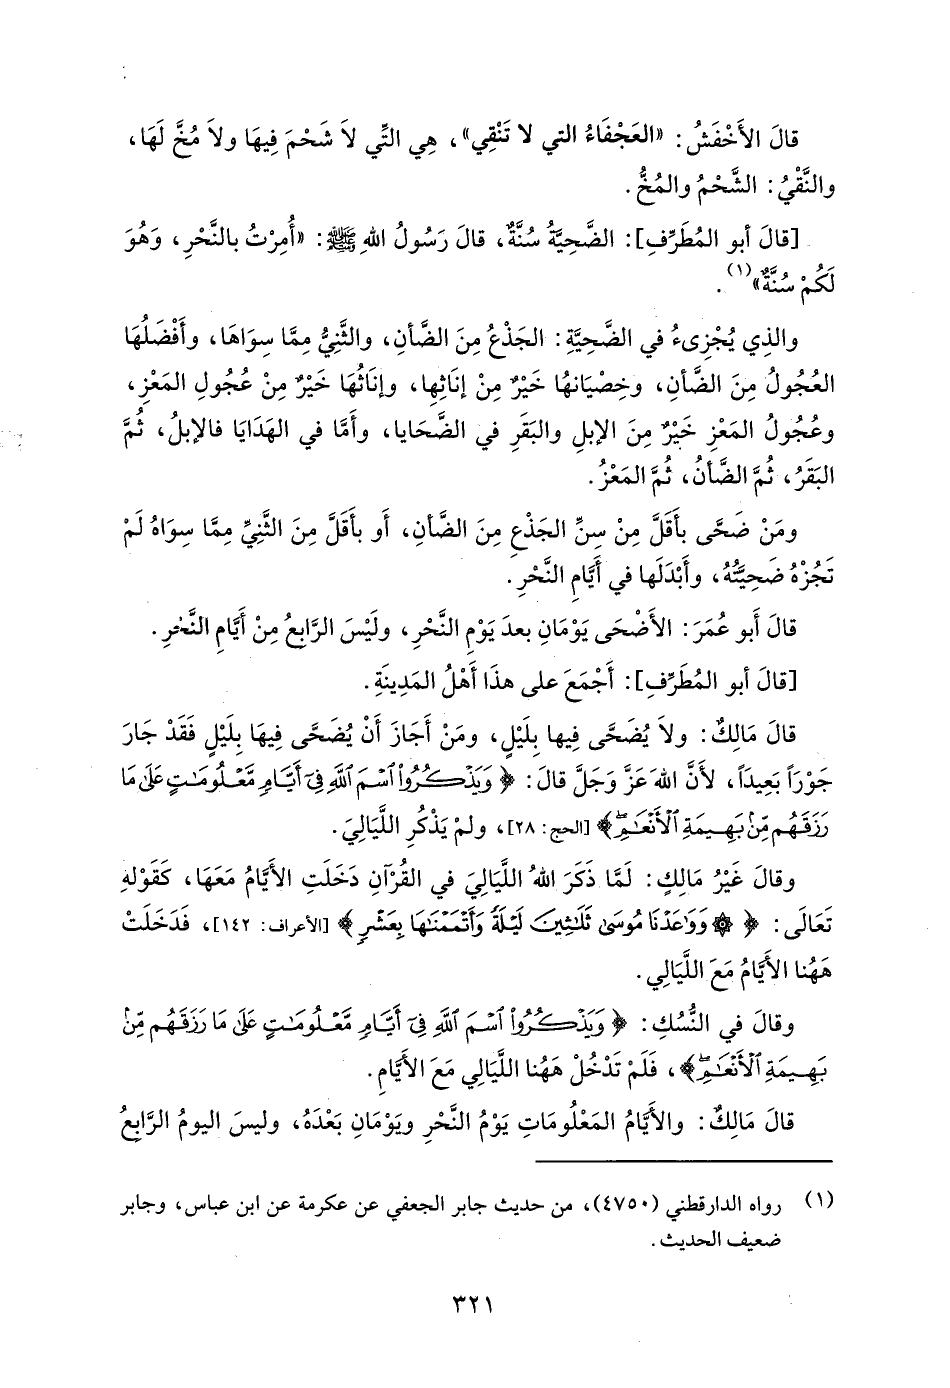 قالَ الأَخْفَشُ: «العَجْفَاءُ التي لا تَنْقِي»، هِي التِّي لاَ شَحْمَ فِيهَا ولاَ مُخَّ لَهَا،
والنَّقْيُ: الشَّحْمُ والمُخُّ.
[قالَ أبو المُطَرِّفِ]: الضَّحِيَّةُ سُنَّةٌ، قالَ رَسُولُ اللهِ ﷺ: «أُمِرْتُ بالنَّحْرِ، وَهُوَ
لَكُمْ سُنَّةٌ»(١).
والذِي يُجْزِىءُ في الضَّحِيَّةِ: الجَذْعُ مِنَ الضَّأنِ، والثَّنِيُّ مِمَّا سِوَاهَا، وأَفْضَلُهَا
العُجُولُ مِنَ الضَّأنِ، وخِصْيَانهُا خَيْرٌ مِنْ إنَاثِها، وإنَاثُهَا خَيْرٌ مِنْ عُجُولِ المَعْزِ،
وعُجُولُ المَعْزِ خَيْرٌ مِنَ الإبلِ والبَقَرِ في الضَّحَايا، وأَمَّا في الهَدَايَا فالإبلُ، ثُمَّ
البَقَرُ، ثُمَّ الضَّأنُ، ثُمَّ المَعْزُ.
ومَنْ ضَحَّى بأَقَلَّ مِنْ سِنِّ الجَذْعِ مِنَ الضَّأنِ، أَو بأَقَلَّ مِنَ الثَّنِيِّ مِمَّا سِوَاهُ لَمْ
تَجُزْهُ ضَحِيَّتُهُ، وأَبْدَلَها في أَيَّامِ النَّحْرِ.
قالَ أَبو عُمَرَ: الأَضْحَى يَوْمَانِ بعدَ يَوْمِ النَّحْرِ، ولَيْسَ الرَّابعُ مِنْ أَيَّامِ النَّحْرِ.
[قالَ أبو المُطَرِّفِ]: أَجْمَعَ على هذَا أَهْلُ المَدِينَةِ.
قالَ مَالِكٌ: ولاَ يُضَحَّى فِيها بِلَيْلٍ، ومَنْ أَجَازَ أَنْ يُضَحَّى فِيهَا بِلَيْلٍ فَقَدْ جَارَ
جَوْرَاً بَعِيداً، لأَنَّ اللهَ عَزَّ وَجَلَّ قالَ: ﴿ وَيَذْكُرُواْ ٱسْمَ ٱللَّهِ فِىٓ أَيَّامٍ مَّعْلُومَٰتٍ عَلَىٰ مَا
رَزَقَهُم مِّنۢ بَهِيمَةِ ٱلْأَنْعَٰمِ ۖ﴾ [الحج: ٢٨]، ولمْ يَذْكُرِ اللَّيَاليَ.
وقالَ غَيْرُ مَالِكٍ: لَمَّا ذَكَرَ اللهُ اللَّيَالِيَ في القُرْآنِ دَخَلَتِ الأَيَّامُ مَعَهَا، كَقَوْلهِ
تَعَالَى: ﴿ ۞ وَوَٰعَدْنَا مُوسَىٰ ثَلَٰثِينَ لَيْلَةً وَأَتْمَمْنَٰهَا بِعَشْرٍ ﴾ [الأعراف: ١٤٢]، فَدَخَلَتْ
هَهُنا الأَيَّامُ مَعَ اللَّيَالِي.
وقالَ في النُّسُكِ: ﴿ وَيَذْكُرُواْ ٱسْمَ ٱللَّهِ فِىٓ أَيَّامٍ مَّعْلُومَٰتٍ عَلَىٰ مَا رَزَقَهُم مِّنۢ
بَهِيمَةِ ٱلْأَنْعَٰمِ ۖ﴾، فَلَمْ تَدْخُلْ هَهُنا اللَّيَالي مَعَ الأَيَّامِ.
قالَ مَالِكٌ: والأَيَّامُ المَعْلُومَاتِ يَوْمُ النَّحْرِ ويَوْمَانِ بَعْدَهُ، وليسَ اليومُ الرَّابعُ
(١) رواه الدارقطني (٤٧٥٠)، من حديث جابر الجعفي عن عكرمة عن ابن عباس، وجابر
ضعيف الحديث.
٣٢١